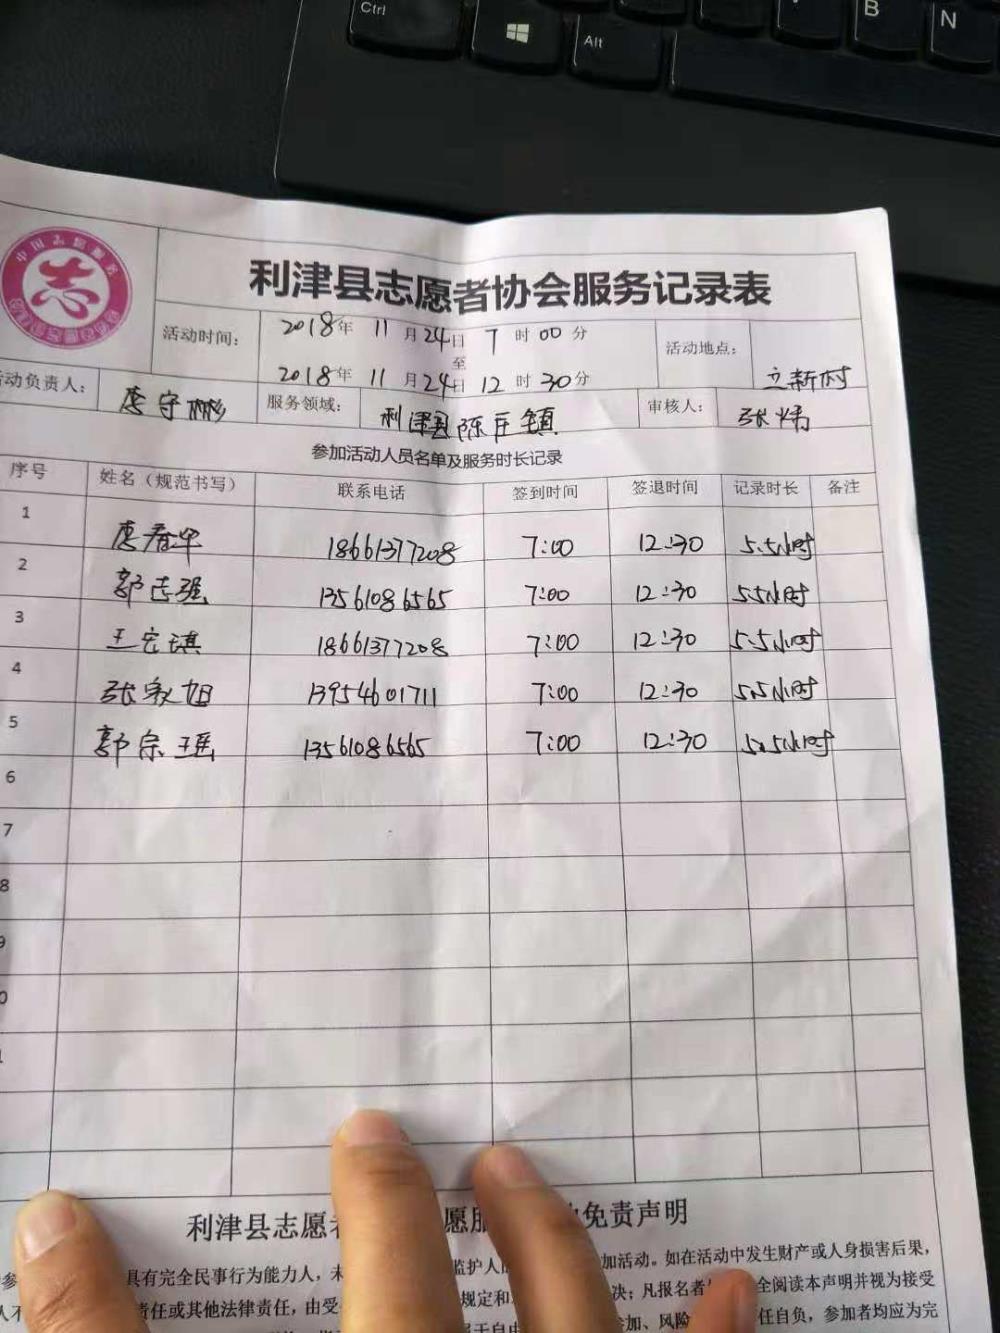 Ctrl
Alt
B
N
中国志愿服务
志
利津县志愿者协会服务记录表
活动时间：
2018年 11月24日 7时00分
至
2018年 11月24日 12时30分
活动地点：
立新村
动负责人：
李守彬
服务领域：
利津县陈庄镇
审核人：
张炜
参加活动人员名单及服务时长记录
序号 姓名（规范书写） 联系电话 签到时间 签退时间 记录时长 备注
1 李春华 18661377208 7:00 12:30 5.5小时
2 郭志强 13561086565 7:00 12:30 5.5小时
3 王宏琪 18661377208 7:00 12:30 5.5小时
4 张家旭 13954601711 7:00 12:30 5.5小时
5 郭宗瑶 13561086565 7:00 12:30 5.5小时
6
7
8
9
0
1
利津县志愿 愿服 免责声明
具有完全民事行为能力人，未 监护人 加活动。如在活动中发生财产或人身损害后果，
责任或其他法律责任，由受 规定和 决；凡报名者 全阅读本声明并视为接受
参加、风险 任自负，参加者均应为完